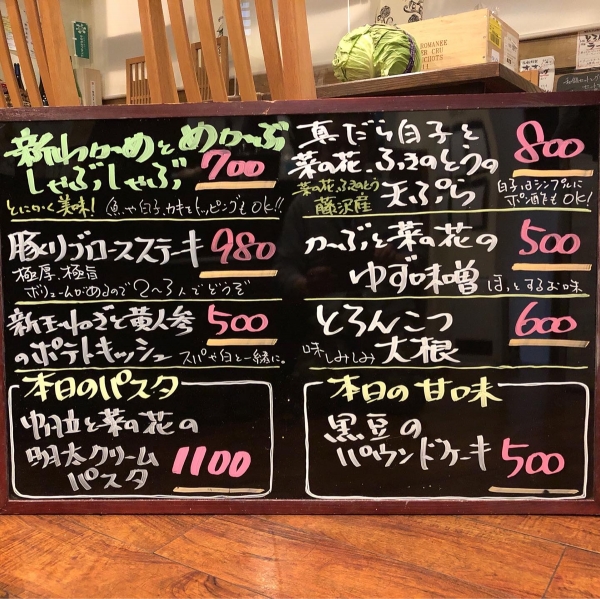 新わかめとめかぶ
しゃぶしゃぶ 700
とにかく美味! 魚や白子、カキをトッピングもOK!!
豚リブロースステーキ 980
極厚、極旨
ボリュームがあるので2〜3人でどうぞ
新玉ねぎと黄人参 500
のポテトキッシュ スパや白と一緒に。
本日のパスタ
帆立と菜の花の
明太クリーム 1100
パスタ
真だら白子と 800
菜の花、ふきのとうの
菜の花、ふきのとう
藤沢産
天ぷら
白子はシンプルに
ポン酢もOK!
かぶと菜の花の 500
ゆず味噌 ほっとするお味
とろんこつ 600
味しみしみ 大根
本日の甘味
黒豆の
パウンドケーキ 500
ROMANEE
CRU